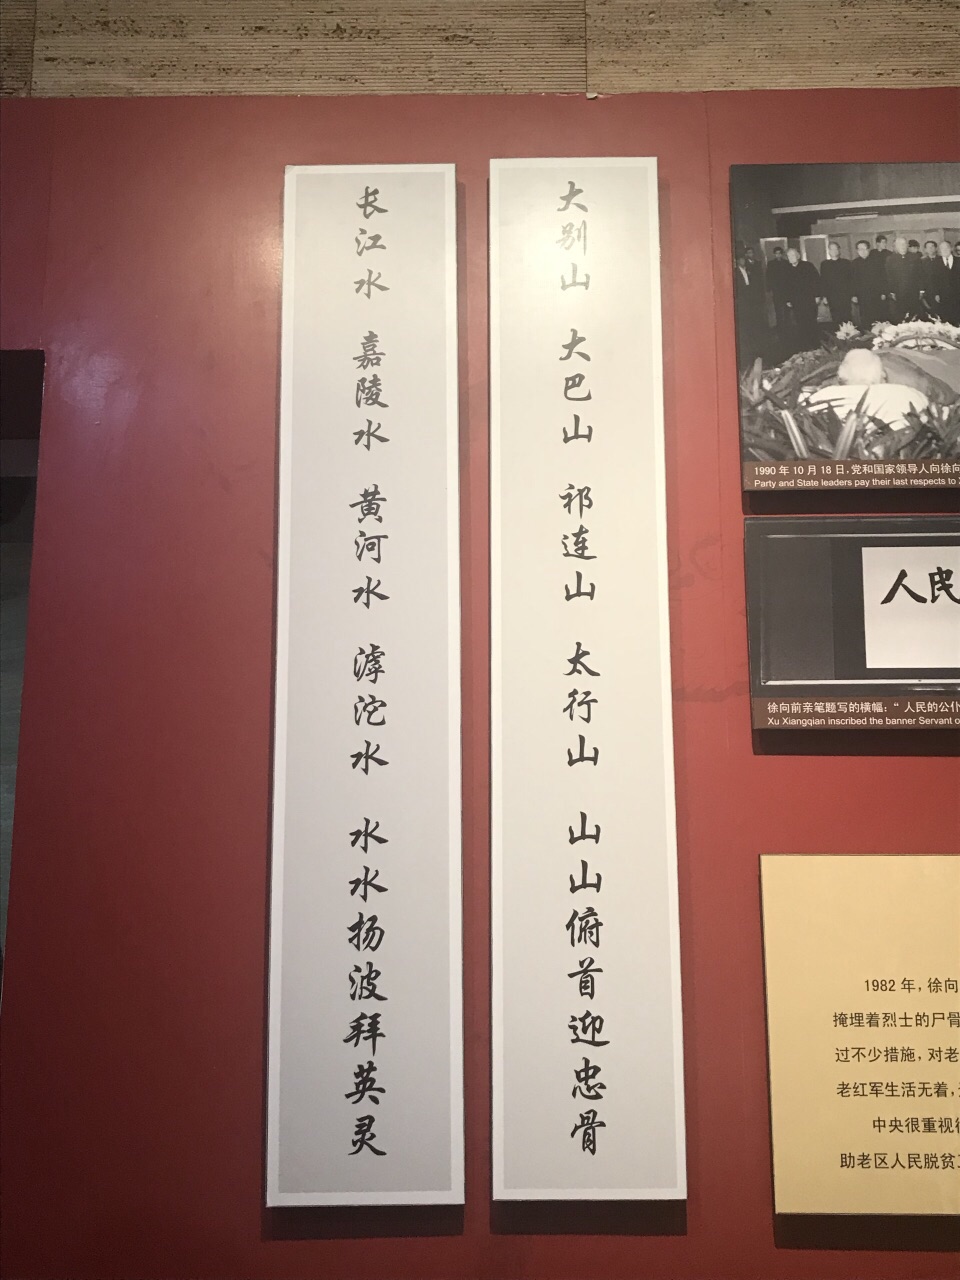 大别山 大巴山 祁连山 太行山 山山俯首迎忠骨
长江水 嘉陵水 黄河水 滹沱水 水水扬波拜英灵
1990年10月18日，党和国家领导人向徐向
Party and State leaders pay their last respects to
人民
徐向前亲笔题写的横幅：“人民的公仆
Xu Xiangqian inscribed the banner Servant o
1982年，徐向
掩埋着烈士的尸骨
过不少措施，对老
老红军生活无着，
中央很重视
助老区人民脱贫